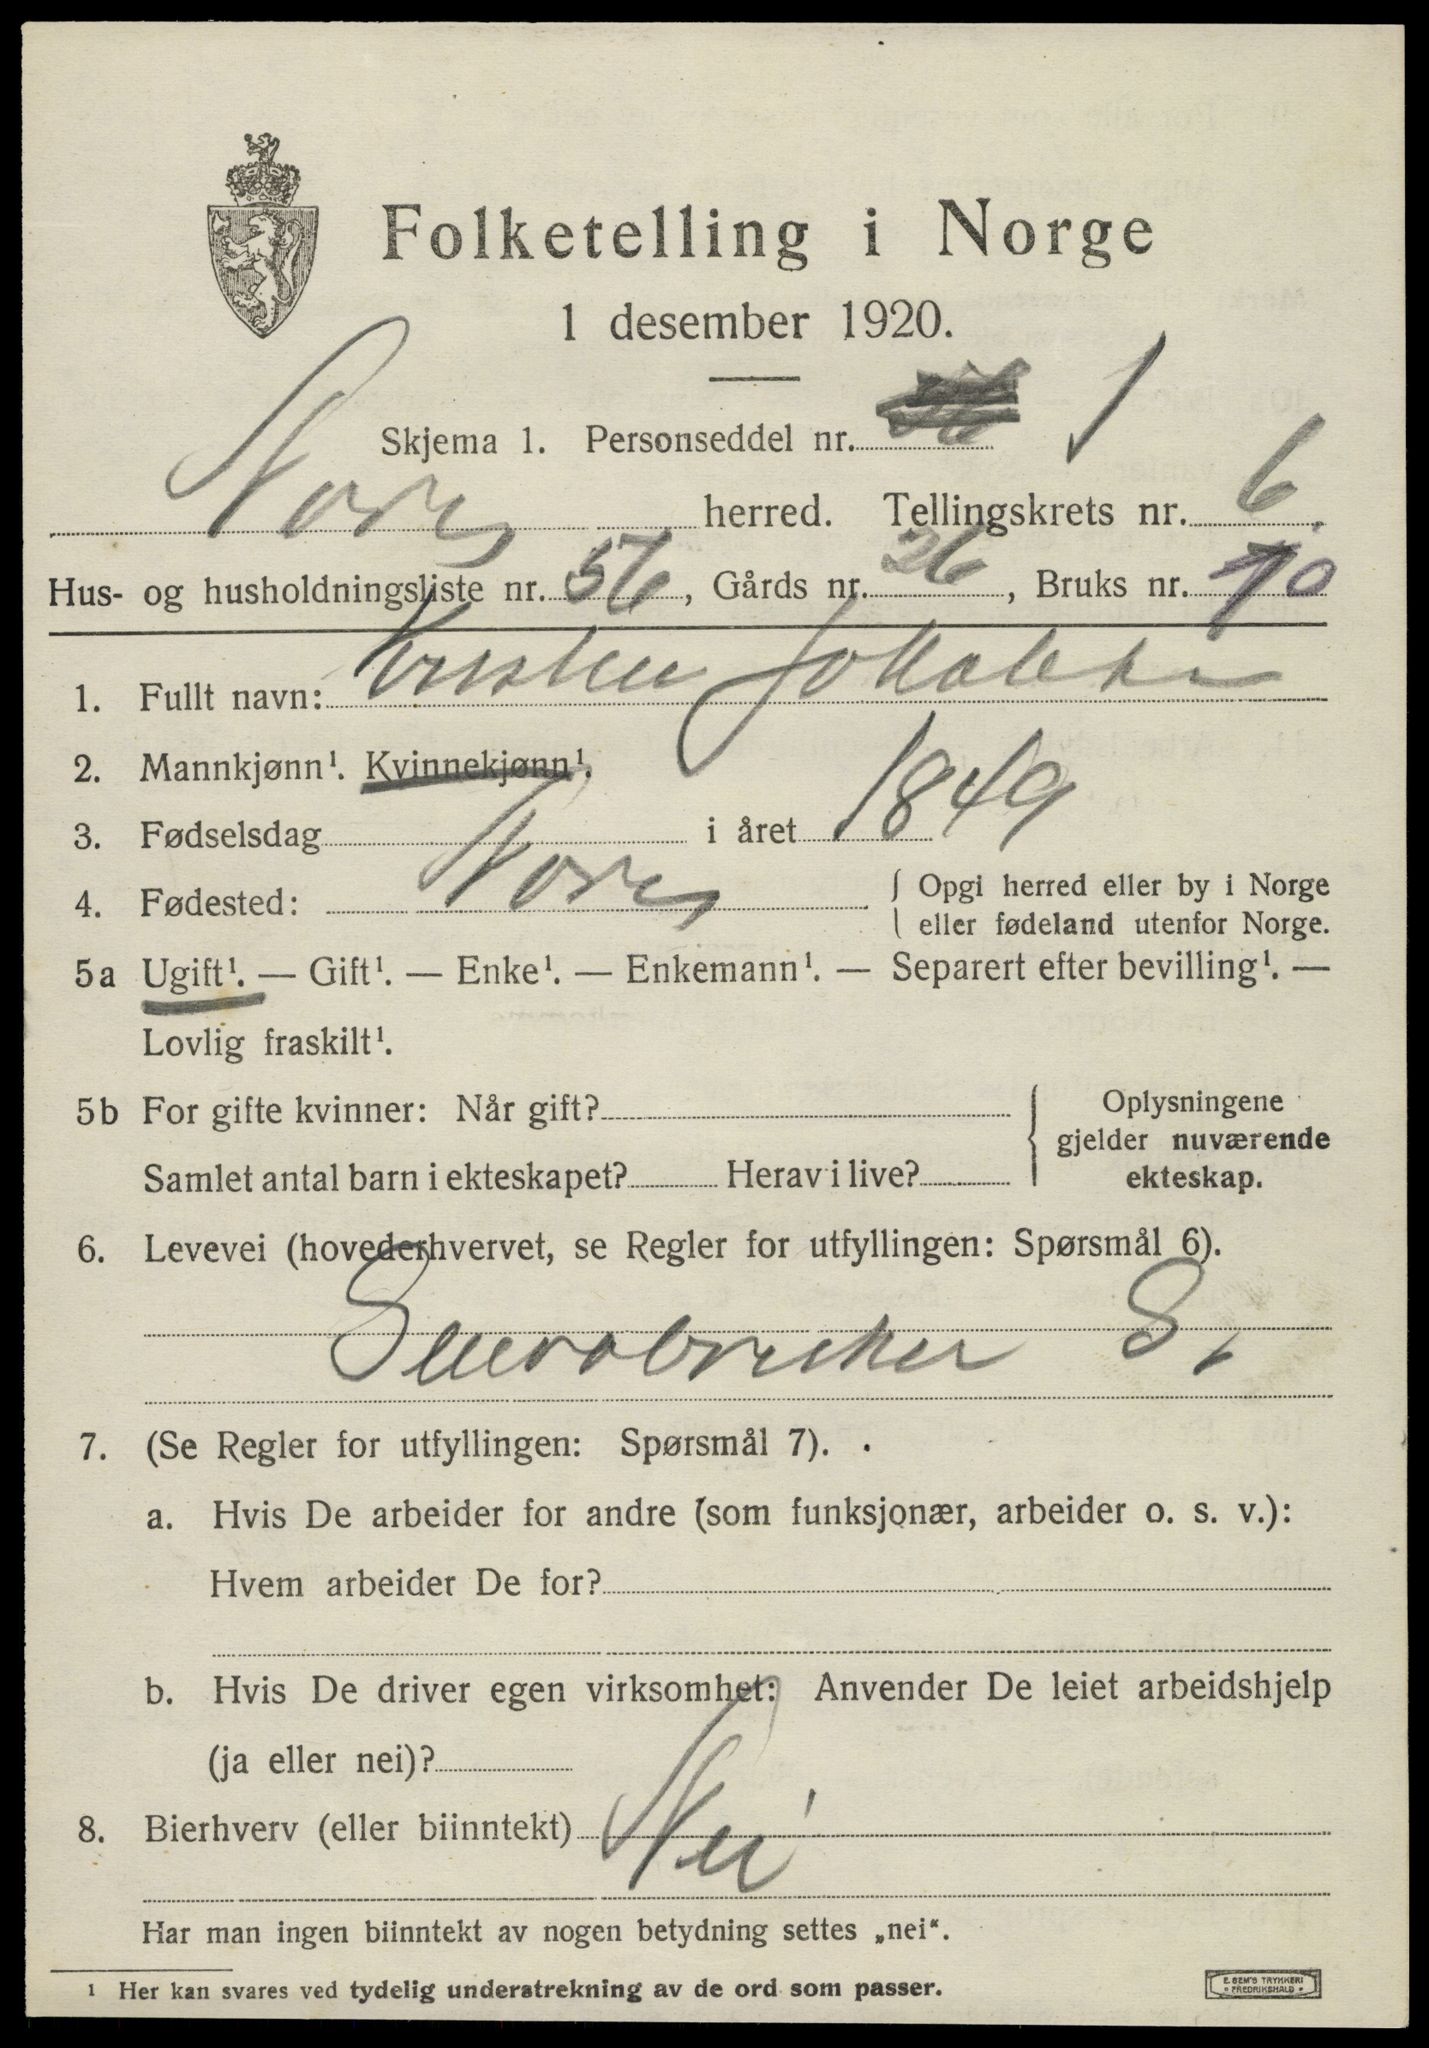 Folketelling i Norge
1 desember 1920.
Skjema 1. Personseddel nr. 1
herred. Tellingskrets nr. 6.
Hus- og husholdningsliste nr. 56, Gårds nr. 26, Bruks nr. 10
1. Fullt navn:
2. Mannkjønn¹. Kvinnekjønn¹.
3. Fødselsdag i året 1849
4. Fødested: { Opgi herred eller by i Norge
eller fødeland utenfor Norge.
5a Ugift¹. — Gift¹. — Enke¹. — Enkemann¹. — Separert efter bevilling¹. —
Lovlig fraskilt¹.
5b For gifte kvinner: Når gift? { Oplysningene
gjelder nuværende
Samlet antal barn i ekteskapet? Herav i live? ekteskap.
6. Levevei (hovederhvervet, se Regler for utfyllingen: Spørsmål 6).
7. (Se Regler for utfyllingen: Spørsmål 7).
a. Hvis De arbeider for andre (som funksjonær, arbeider o. s. v.):
Hvem arbeider De for?
b. Hvis De driver egen virksomhet: Anvender De leiet arbeidshjelp
(ja eller nei)?
8. Bierhverv (eller biinntekt) Nei
Har man ingen biinntekt av nogen betydning settes „nei“.
¹ Her kan svares ved tydelig understrekning av de ord som passer.
E. SEM'S TRYKKERI
* FREDRIKSHALD *